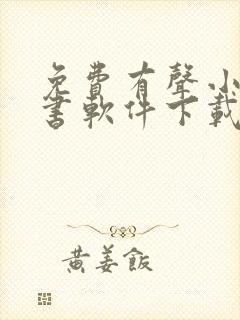 免費有聲小
書軟件下載
黃姜飯